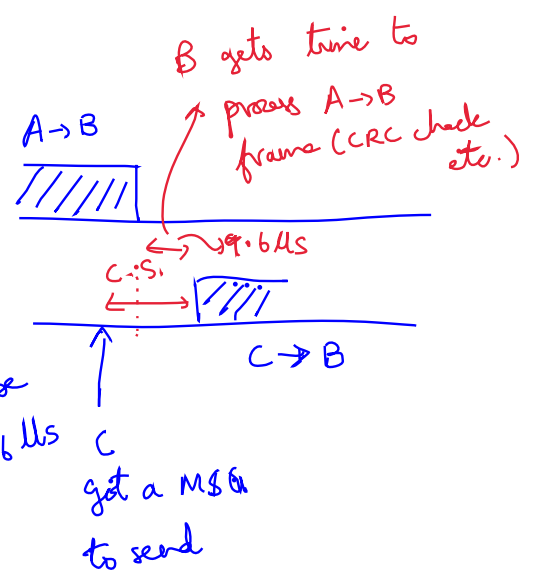 B gets time to
process A→B
frame (CRC check
etc.)
A→B
9.6 Us
C.S.
C → B
se
6 Us
C
got a MSG
to send